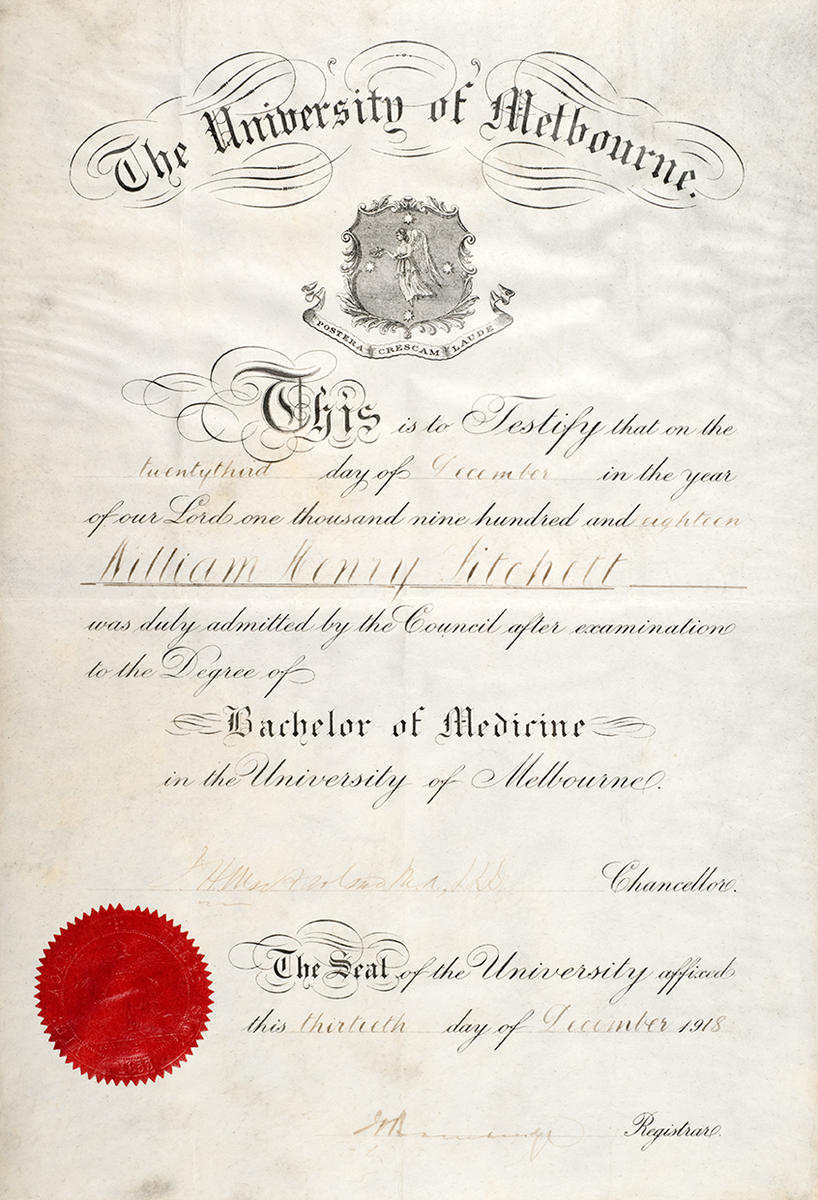 The University of Melbourne.
POSTERA CRESCAM LAUDE
This is to Testify that on the
twentythird day of December in the year
of our Lord one thousand nine hundred and eighteen
William Henry Fitchett
was duly admitted by the Council after examination
to the Degree of
Bachelor of Medicine
in the University of Melbourne.
Chancellor.
The Seal of the University affixed
this thirtieth day of December 1918
Registrar.